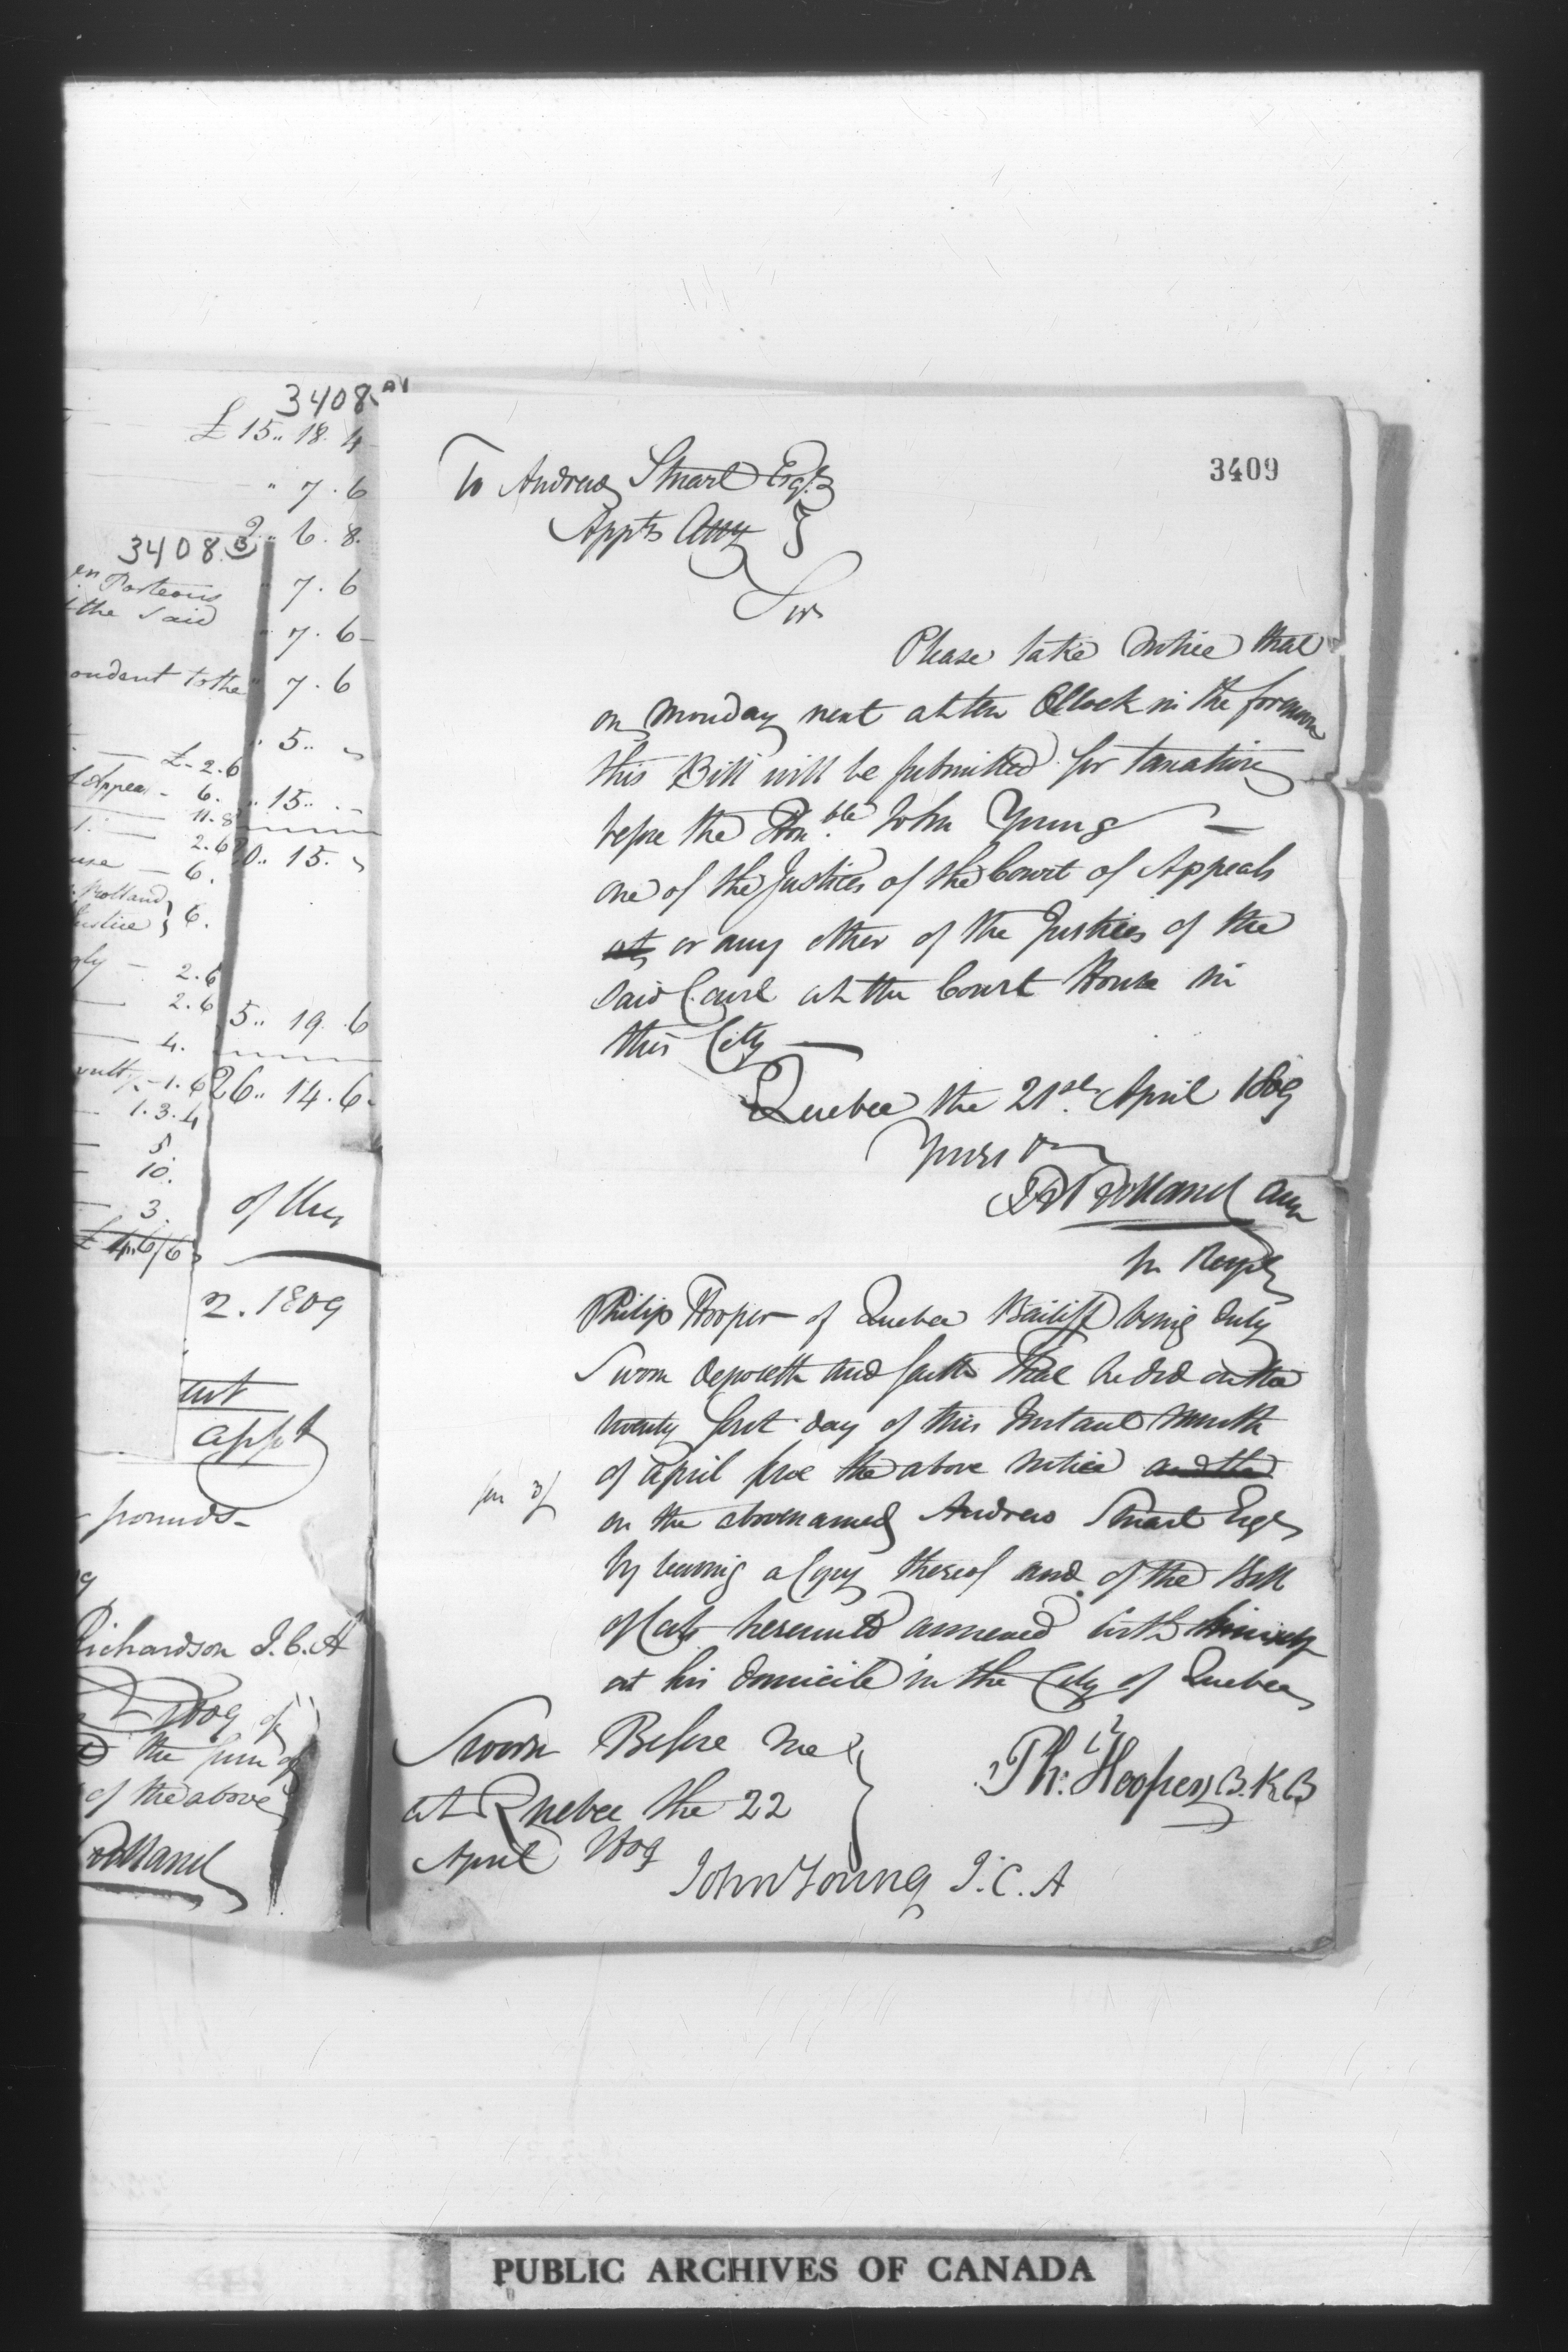 3408 A1
£ 15.. 18. 4
" 7. 6
2.. 6. 8.
3408 B
en Porteous " 7. 6
t the said " 7. 6-
ondent to the " 7. 6
" 5..
£-2.6
Appea - 6. " 15.. -
11.8
2.6 20.. 15.
use - 6.
Rolland
Justice } 6.
gly - 2.6
2.6 5.. 19. 6
4.
- 1.6 26.. 14. 6.
1.3.4
5.
10.
3
£ 4.6/6
of the
2. 1809
ent
appt
pounds-
Richardson J.C.A
1809 of
the sum of
of the above
Rolland
3409
To Andrew Stuart Esqr
Appts Atty }
Sir
Please take notice that
on monday next at ten OClock in the forenoon
this Bill will be submitted for taxation
before the Hon.ble John Young —
one of the Justices of the Court of Appeals
at, or any other of the Justices of the
said Court at the Court House in
this City —
Quebec the 21st. April 1809
Yours &c
Rolland Atty
for Respt
Philip Hooper of Quebec Bailiff being duly
Sworn deposeth and saith that he did on the
twenty first day of this Instant month
of april serve the above notice and the
on the abovenamed Andrew Stuart Esqr
by leaving a Copy thereof and of the Bill
of Costs hereunto annexed with himself
at his domicile in the City of Quebec
Sworn Before me }
at Quebec the 22
April 1809
Ph: Hooper B.K.B
John Young J.C.A
PUBLIC ARCHIVES OF CANADA